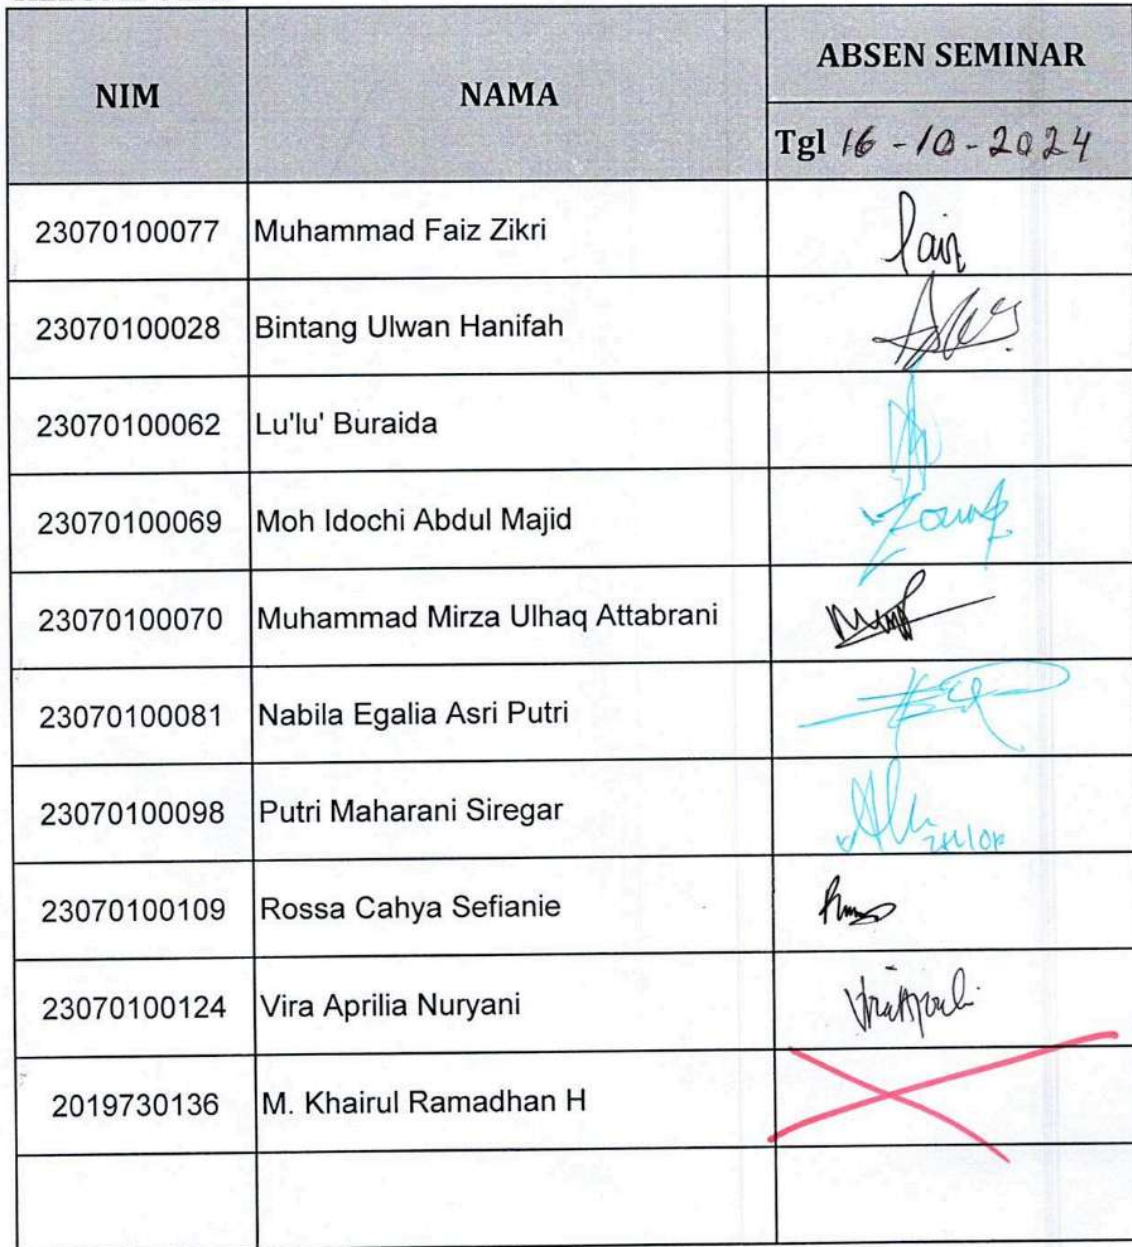 NIM NAMA ABSEN SEMINAR
Tgl 16-10-2024
23070100077 Muhammad Faiz Zikri
23070100028 Bintang Ulwan Hanifah
23070100062 Lu'lu' Buraida
23070100069 Moh Idochi Abdul Majid
23070100070 Muhammad Mirza Ulhaq Attabrani
23070100081 Nabila Egalia Asri Putri
23070100098 Putri Maharani Siregar
23070100109 Rossa Cahya Sefianie
23070100124 Vira Aprilia Nuryani
2019730136 M. Khairul Ramadhan H